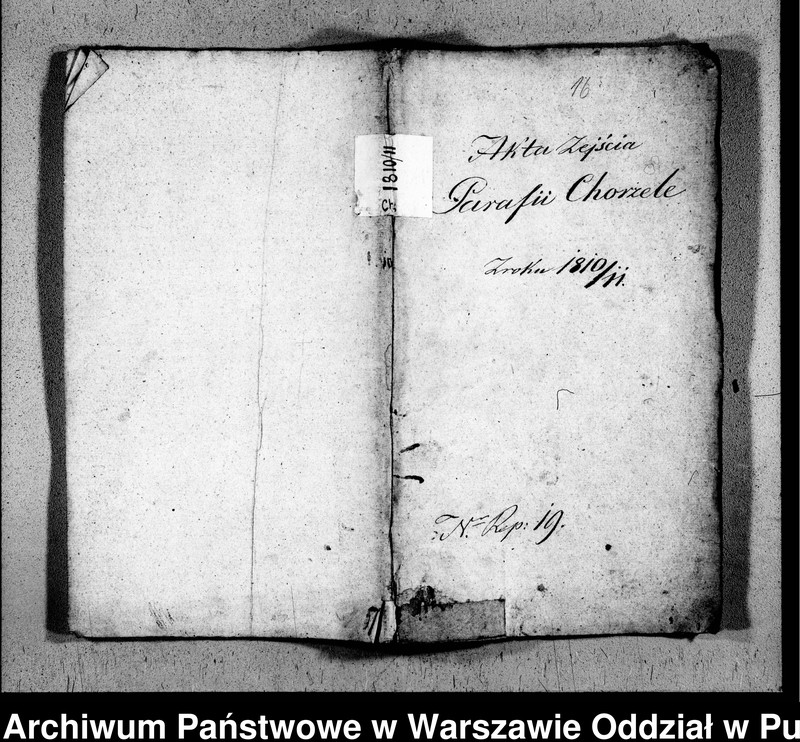 16
Akta Zejścia
Parafii Chorzele
Zroku 1810/11.
Ch. 1810/11
Nr Rep: 19.
Archiwum Państwowe w Warszawie Oddział w Pu